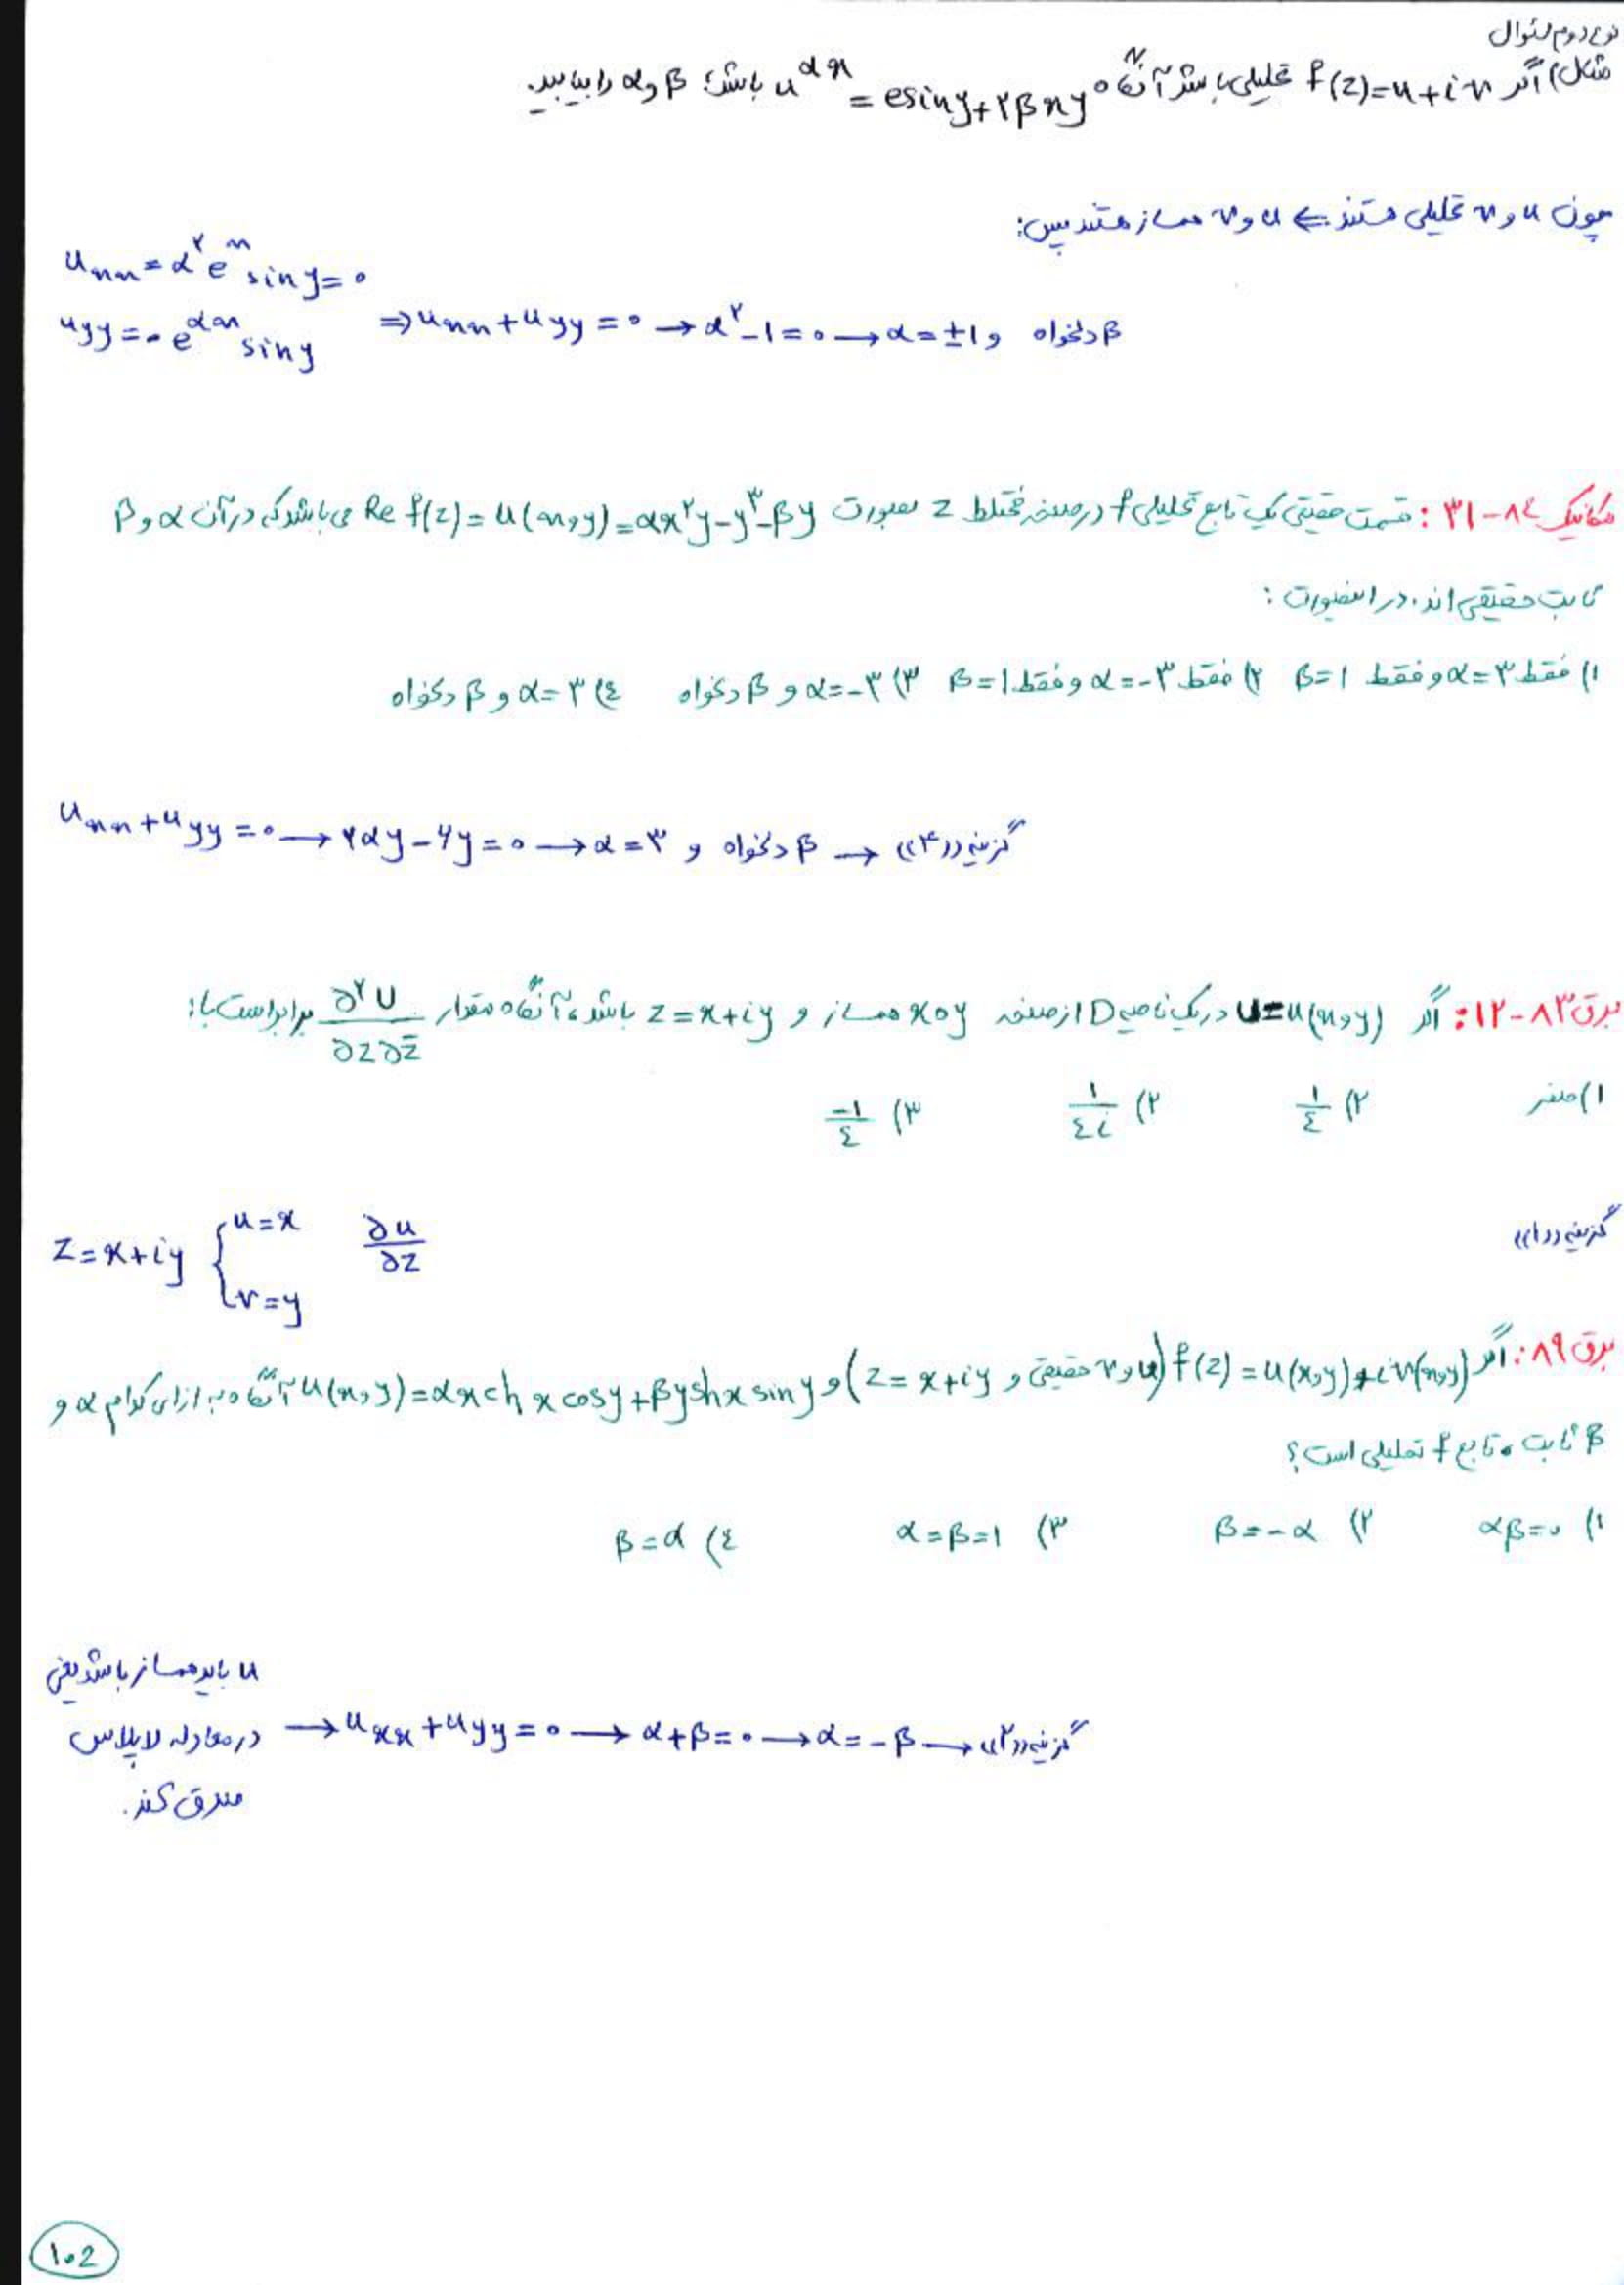 نوع دوم سئوال
مثال) اگر f(z)=u+iv تحلیلی باشد آنگاه u^αx = esiny+۲βxy باشد؛ β و α را بیابید.
چون u و v تحلیلی هستند ⇐ u و v همساز هستند پس:
uxx = α^۲ e^x sin y = ۰
uyy = -e^αx sin y ⇒ uxx + uyy = ۰ → α^۲ - ۱ = ۰ → α = ±۱ و β دلخواه
مکانیک ۸۴-۳۱: قسمت حقیقی یک تابع تحلیلی f در صفحه مختلط z بصورت Re f(z) = u(x,y) = αx^۲y - y^۳ - βy می باشد که در آن α و β
ثابت حقیقی اند. در اینصورت:
۱) فقط α=۳ و فقط β=۱ ۲) فقط α=-۳ و فقط β=۱ ۳) α=-۳ و β دلخواه ۴) α=۳ و β دلخواه
uxx + uyy = ۰ → ۲αy - ۶y = ۰ → α = ۳ و β دلخواه → گزینه ((۴))
برق ۸۳-۱۲: اگر u=u(x,y) در یک ناحیه D از صفحه xoy همساز و z=x+iy باشد، آنگاه مقدار ∂^۲U/∂z∂z̄ برابر است با:
۱) صفر ۲) ۱/۴ ۲) ۱/۴i ۳) -۱/۴
گزینه ((۱))
z=x+iy { u=x v=y ∂u/∂z
برق ۸۹: اگر f(z) = u(x,y)+iv(x,y) (u و v حقیقی و z=x+iy) و u(x,y)=αx ch x cosy + βy shx sin y آنگاه به ازای کدام α و
β ثابت، تابع f تحلیلی است؟
۱) αβ=۰ ۲) β=-α ۳) α=β=۱ ۴) β=α
u باید همساز باشد یعنی
در معادله لاپلاس → uxx + uyy = ۰ → α+β=۰ → α=-β → گزینه ((۲))
صدق کند.
۱۰2